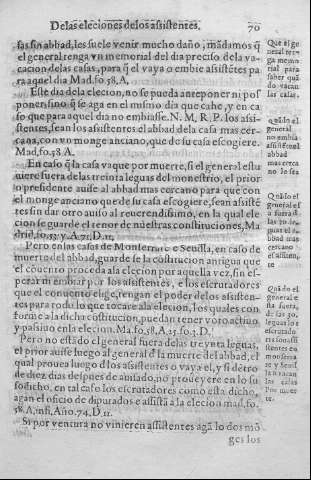 De las eleciones de los asistentes.
70
sas sin abbad, les suele venir mucho daño, mãdamos q̃
el general tenga vn memorial del dia preciso de la va
cacion de las casas, para q̃ el vaya o embie asistẽtes pa
ra aquel dia Mad.fo.58,A,
Este dia dela elecion, no se pueda anteponer ni pos
poner sino q̃ se aga en el mismo dia que cahe, y en ca
so que para aquel dia no embiasse. N. M. R. P. los asi-
stentes, sean los asistentes el abbad dela casa mas cer-
cana, con vn monge anciano, que de su casa escogiere.
Mad,fo,58 A.
En caso q̃ la casa vaque por muerte, si el general estu
uiere fuera delas treinta leguas del monestrio, el prior
o presidente auise al abbad mas cercano para que con
el monge anciano que de su casa escogiere, sean asistẽ
tes sin dar otro auiso al reuerendissimo, en la qual ele
cion se guarde el tenor de nuestras constituciones, Ma
Pero en las casas de Monserrate e Seuilla, en caso de
muerte del abbad, guarde se la costitucion antigua que
el cõuento proceda ala elecion por aquella vez, sin es-
perar ni embiar por los asistentes, e los escrutadores
que el conuento elige, tengan el poder delos asisten-
tes para todo lo que tocare ala elecion, los quales con
forme a la dicha costitucion, puedan tener voto actiuo
y pasiuo en la elecion. Ma.fo,58,A,25.fo.5.D.
Pero no estãdo el general fuera delas treynta leguas,
el prior auise luego al general d̃ la muerte del abbad, el
qual prouea luego d̃ los asistentes o vaya el, y si dẽtro
de diez dias despues de auisado, no proueyere en lo su
sodicho, en tal caso los escrutadores como esta dicho,
agan el oficio de diputados e assistã a la elecion mad,fo.
58,A,infi,Año.74,D.11.
Si por ventura no vinieren assistentes agã lo dos mõ
ges los
Que el ge
neral ten-
ga memo
rial para
saber quã
do vacan
las casas.
Quãdo el
general
no embia
assistẽtes el
abbad
mas cerca
no le sea
Quãdo el
general es
a fuera d̃
las 30 le-
guas, el a
bbad mas
cercano
es asistẽn
te
Quãdo el
general e
sta fuera,
de las 30,
leguas los
escrutado
res son assi
stentes en
monserra
te y Seuil
la si vacan
las casas
Por muer
te.